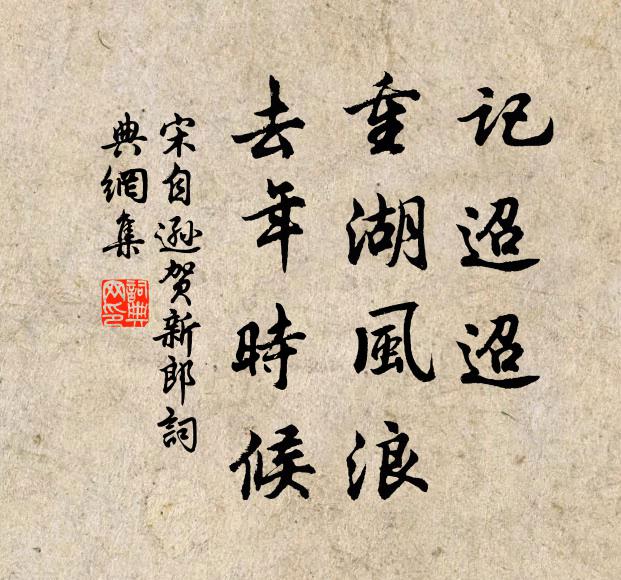 記迢迢
重湖風浪
去年時候
宋自遜賀新郎詞
典網集
詞典
网印